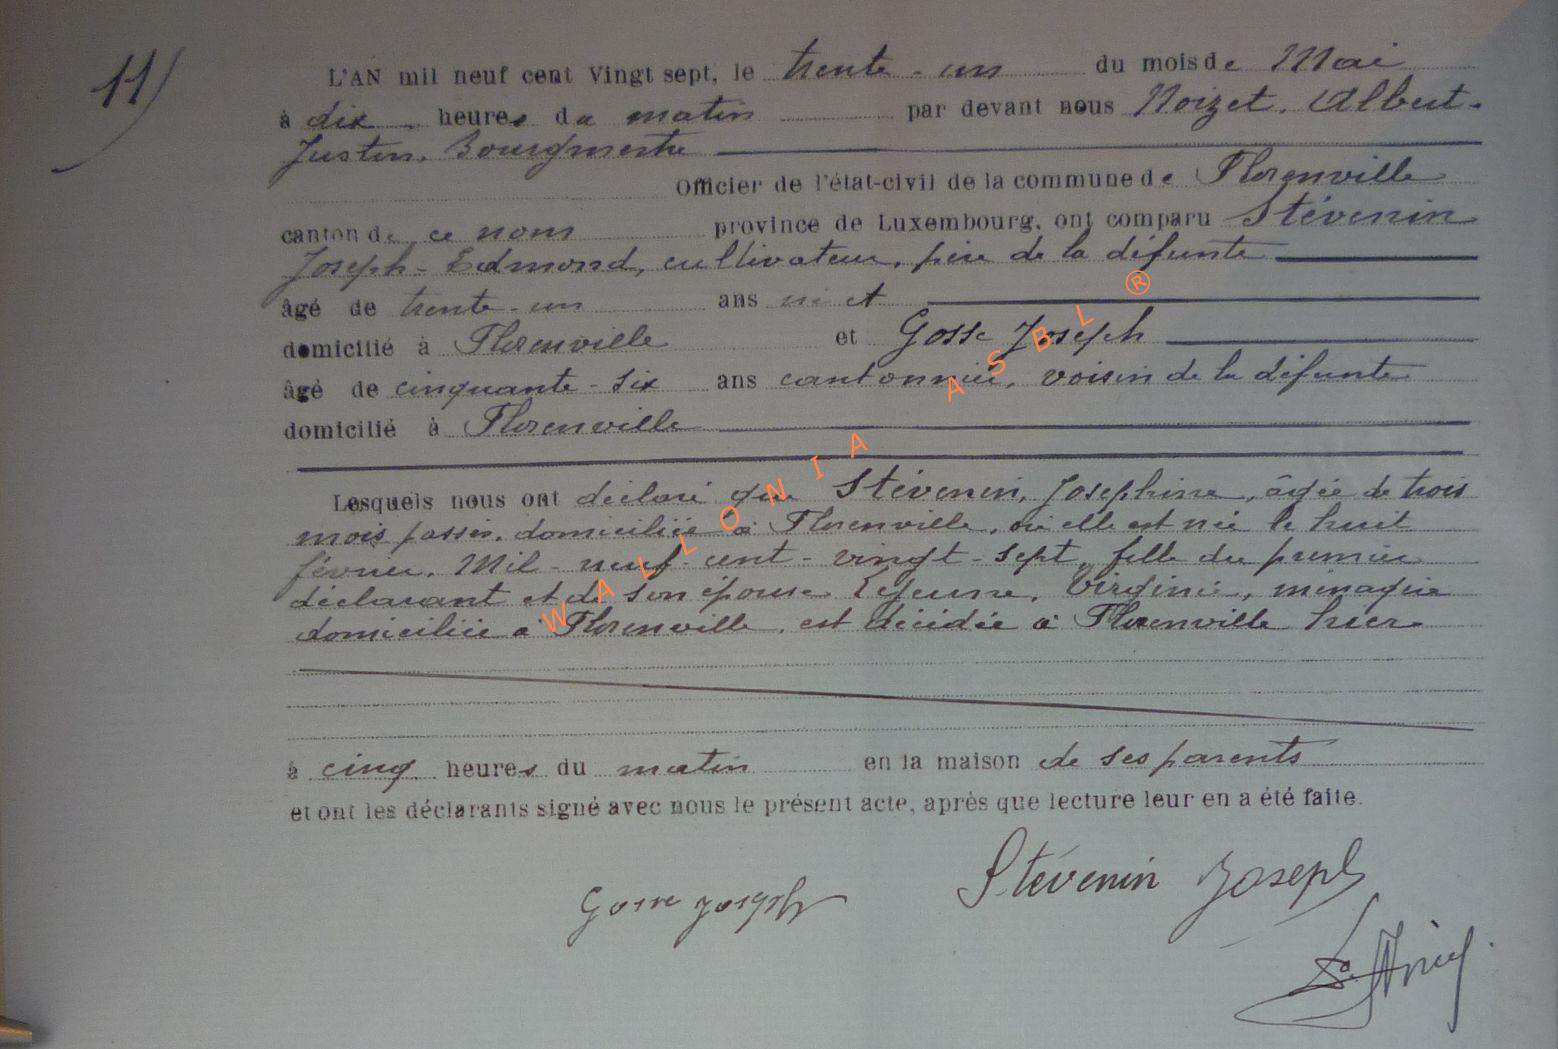 11)
L'AN mil neuf cent Vingt sept, le trente-un du mois de Mai
à dix heures du matin par devant nous Noizet, Albert-
Justin, Bourgmestre
Officier de l'état-civil de la commune de Florenville
canton de ce nom province de Luxembourg, ont comparu Stévenin
Joseph-Edmond, cultivateur, père de la défunte
âgé de trente-un ans
domicilié à Florenville et Gosse Joseph
âgé de cinquante-six ans cantonnier, voisin de la défunte
domicilié à Florenville
Lesquels nous ont déclaré que Stévenin, Josephine, âgée de trois
mois passés, domiciliée à Florenville, où elle est née le huit
février, Mil-neuf-cent-vingt-sept, fille du premier
déclarant et de son épouse Lejeune, Virginie, ménagère
domiciliée à Florenville, est décédée à Florenville hier
à cinq heures du matin en la maison de ses parents
et ont les déclarants signé avec nous le présent acte, après que lecture leur en a été faite.
Stévenin Joseph
Gosse Joseph
WALLONIA ASBL ®